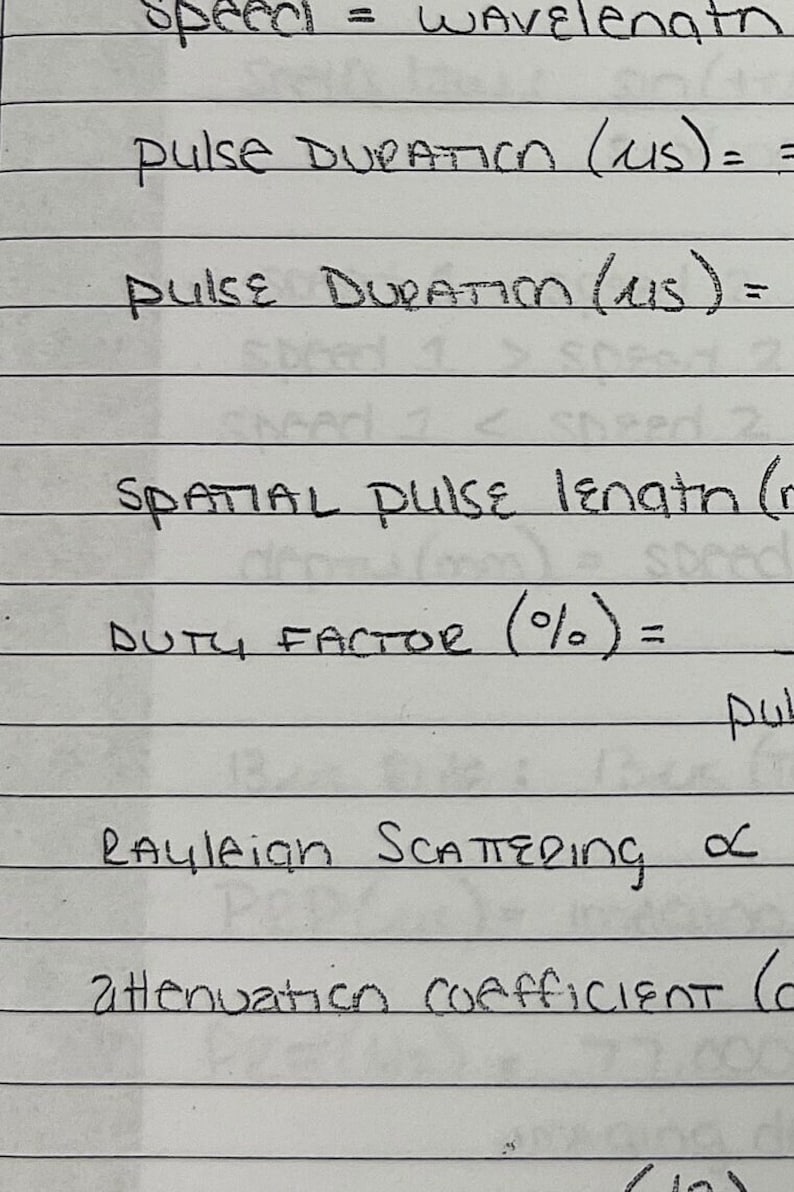 speed = wavelength
pulse DURATION (μs) = =
pulse DURATION (μs) =
SPATIAL pulse length (
DUTY FACTOR (%) =
pul
RAyleigh SCATTERing ∝
attenuation coefficient (